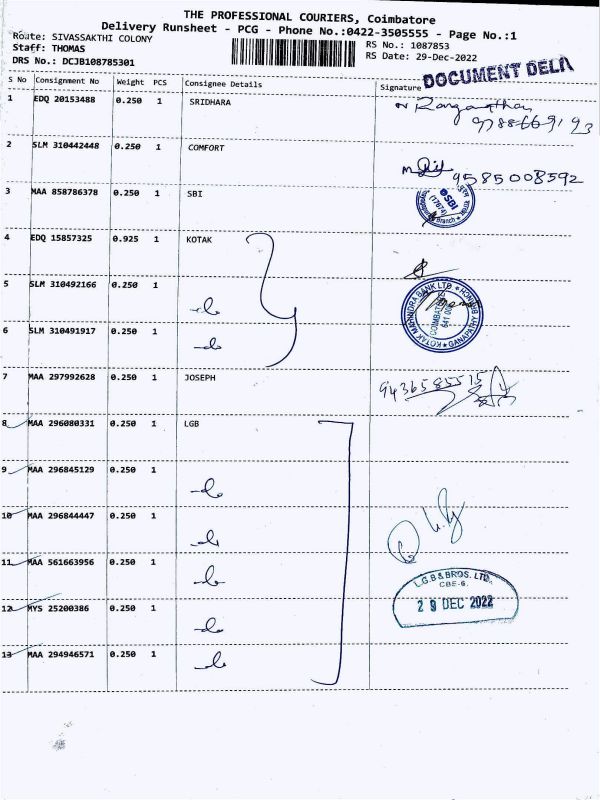 THE PROFESSIONAL COURIERS, Coimbatore
Delivery Runsheet - PCG - Phone No.:0422-3505555 - Page No.:1
Route: SIVASSAKTHI COLONY
Staff: THOMAS
DRS No.: DCJB108785301
RS No.: 1087853
RS Date: 29-Dec-2022
DOCUMENT DELI
S No Consignment No Weight PCS Consignee Details Signature
1 EDQ 20153488 0.250 1 SRIDHARA
2 SLM 310442448 0.250 1 COMFORT
9585008592
3 MAA 858786378 0.250 1 SBI
SBI
(17674)
Branch
4 EDQ 15857325 0.925 1 KOTAK
5 SLM 310492166 0.250 1 -do-
KOTAK MAHINDRA BANK LTD.
GANAPATHY BRANCH
COIMBATORE
6 SLM 310491917 0.250 1 -do-
7 MAA 297992628 0.250 1 JOSEPH
9436585515
8 MAA 296080331 0.250 1 LGB
9 MAA 296845129 0.250 1 -do-
10 MAA 296844447 0.250 1 -do-
11 MAA 561663956 0.250 1 -do-
L.G.B & BROS. LTD.
CBE-6.
29 DEC 2022
12 MYS 25200386 0.250 1 -do-
13 MAA 294946571 0.250 1 -do-